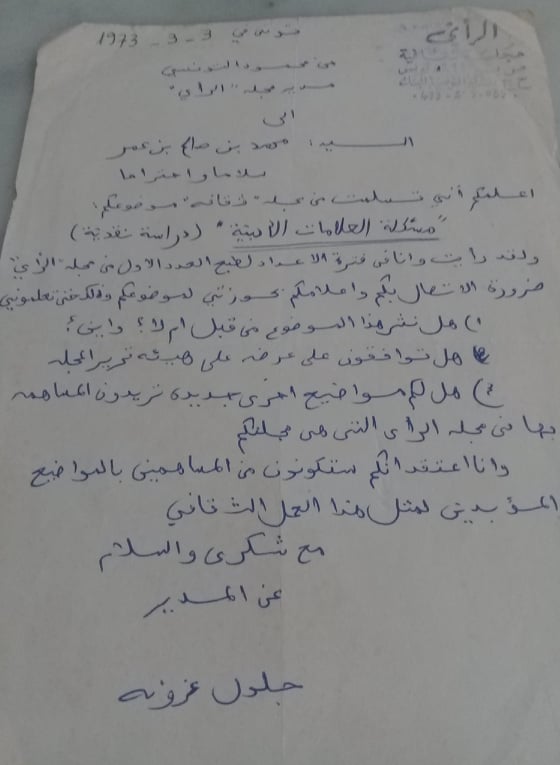 الرأي
تونس في 3 - 3 - 1973
من محمود التونسي
مدير مجلة "الرأي"
الى
السيد: محمد بن صالح بن عمر
سلاما واحتراما
اعلمكم أنني تسلمت من مجلة "ثقافة" موضوعكم:
"مشكلة العلامات الأدبية" (دراسة نقدية)
ولقد رأيت وانا في فترة الاعداد لطبع العدد الاول من مجلة "الرأي"
ضرورة الاتصال بكم واعلامكم بحوزتي لموضوعكم وذلك حتى تعلموني
1) هل نشر هذا الموضوع من قبل ام لا؟ واين؟
2 هل توافقون على عرضه على هيئة تحرير المجلة
3) هل لكم مواضيع اخرى جديدة تريدون المساهمة
بها في مجلة الرأي التي هي مجلتكم
وانا اعتقد انكم ستكونون من المساهمين بالمواضيع
المؤيدين لمثل هذا العمل الثقافي
مع شكري والسلام
عن المدير
جلول عزونة